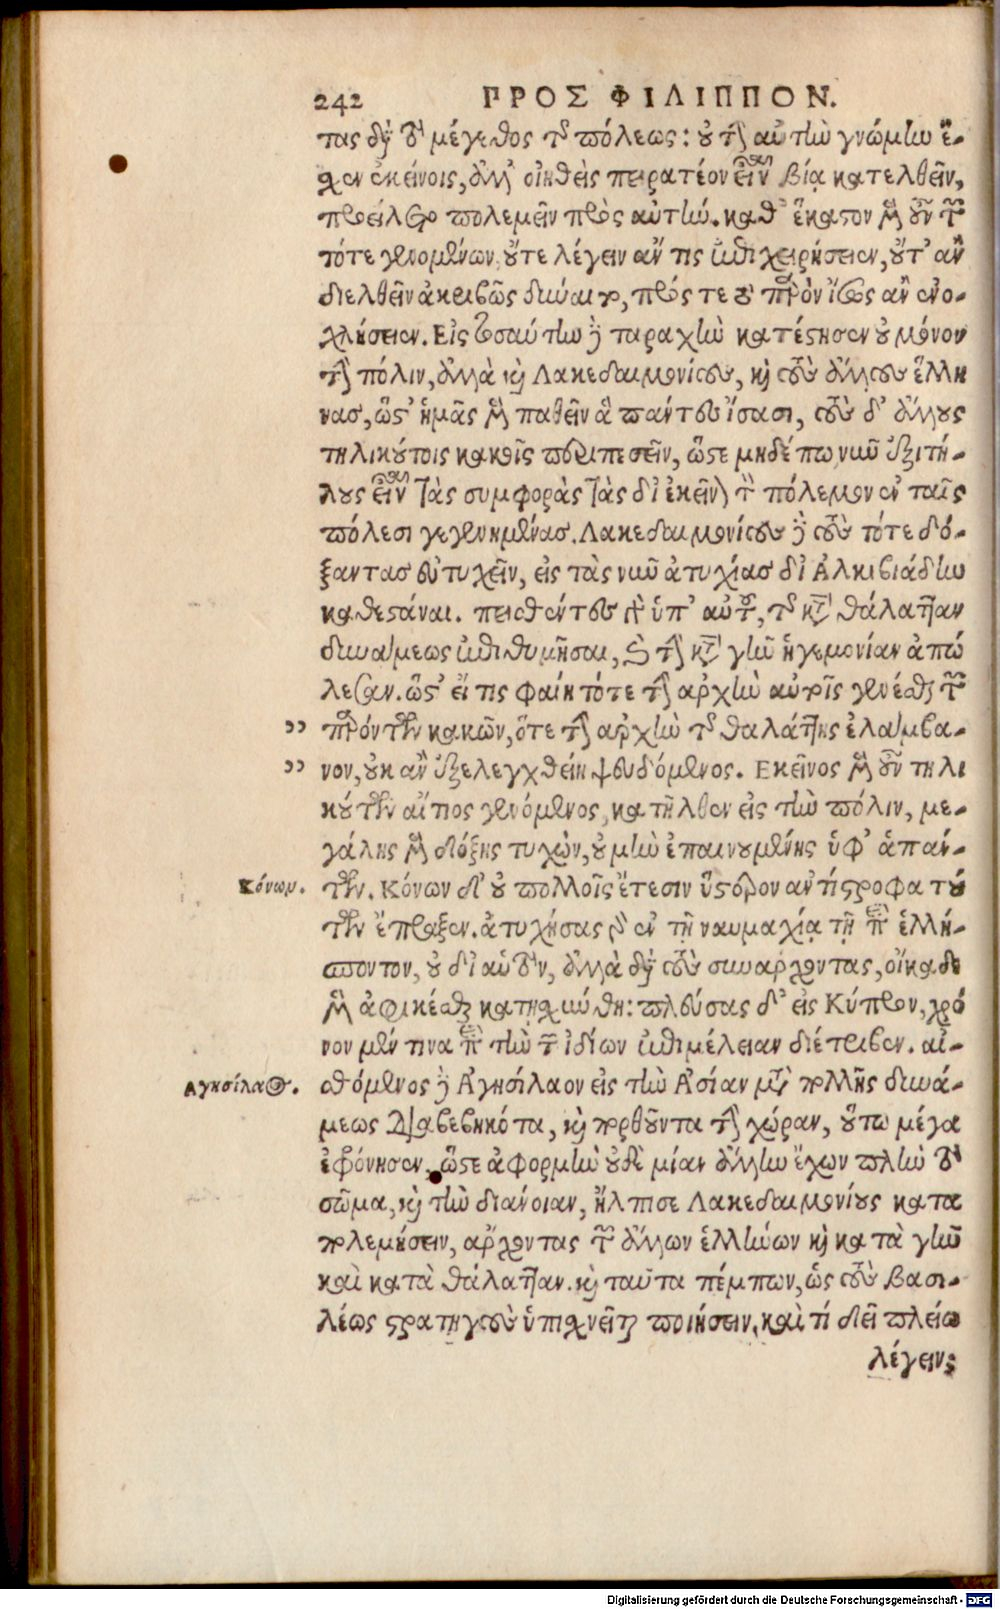 242 ΠΡΟΣ ΦΙΛΙΠΠΟΝ.
τας διὰ τὸ μέγεθος τῆς πόλεως: οὐ τὴν αὐτὴν γνώμην ἔ-
σχεν ἐκείνοις, ἀλλ' οἰηθεὶς πειρατέον εἶναι βίᾳ κατελθεῖν,
προείλετο πολεμεῖν πρὸς αὐτήν. καθ' ἕκαστον μὲν οὖν τῶν
τότε γενομένων οὔτε λέγειν ἄν τις ἐπιχειρήσειεν, οὔτ' ἂν
διελθεῖν ἀκριβῶς δύναιτο, πρός τε τὸ παρὸν ἴσως ἂν ἐνο-
χλήσειεν. Εἰς τοσαύτην δὲ ταραχὴν κατέστησεν οὐ μόνον
τὴν πόλιν, ἀλλὰ καὶ Λακεδαιμονίους, καὶ τοὺς ἄλλους ἕλλη
νας, ὥστ' ἡμᾶς μὲν παθεῖν ἃ πάντες ἴσασι, τοὺς δ' ἄλλους
τηλικούτοις κακοῖς περιπεσεῖν, ὥστε μηδέπω νῦν ἐξιτή-
λους εἶναι τὰς συμφορὰς τὰς δι' ἐκεῖνον τὸν πόλεμον ἐν ταῖς
πόλεσι γεγενημένας. Λακεδαιμονίους δὲ τοὺς τότε δό-
ξαντας εὐτυχεῖν, εἰς τὰς νῦν ἀτυχίας δι' Ἀλκιβιάδην
καθεστάναι. πεισθέντες γὰρ ὑπ' αὐτοῦ, τῆς κατὰ θάλατταν
δυνάμεως ἐπιθυμῆσαι, καὶ τὴν κατὰ γῆν ἡγεμονίαν ἀπώ
λεσαν. ὥστ' εἴ τις φαίη τότε τὴν ἀρχὴν αὐτοῖς γενέσθαι τῶν
,, παρόντων κακῶν, ὅτε τὴν ἀρχὴν τῆς θαλάττης ἐλάμβα-
,, νον, οὐκ ἂν ἐξελεγχθείη ψευδόμενος. Ἐκεῖνος μὲν οὖν τηλι
κούτων αἴτιος γενόμενος, κατῆλθεν εἰς τὴν πόλιν, με-
γάλης μὲν δόξης τυχὼν, οὐ μὴν ἐπαινουμένης ὑφ' ἁπάν-
Κόνων. των. Κόνων δ' οὐ πολλοῖς ἔτεσιν ὕστερον ἀντίστροφα τού
των ἔπραξεν. ἀτυχήσας γὰρ ἐν τῇ ναυμαχίᾳ τῇ περὶ ἑλλή-
σποντον, οὐ δι' αὑτὸν, ἀλλὰ διὰ τοὺς συνάρχοντας, οἴκαδε
μὲν ἀφικέσθαι κατῃσχύνθη: πλεύσας δ' εἰς Κύπρον, χρό
νον μέν τινα περὶ τὴν τῶν ἰδίων ἐπιμέλειαν διέτριβεν. αἰ-
Ἀγησίλαος. σθόμενος δὲ Ἀγησίλαον εἰς τὴν Ἀσίαν μετὰ πολλῆς δυνά-
μεως διαβεβηκότα, καὶ πορθοῦντα τὴν χώραν, οὕτω μέγα
ἐφρόνησεν, ὥστε ἀφορμὴν οὐδὲ μίαν ἄλλην ἔχων πλὴν τὸ
σῶμα, καὶ τὴν διάνοιαν, ἤλπισε Λακεδαιμονίους κατα
πολεμήσειν, ἄρχοντας τῶν ἄλλων ἑλλήνων καὶ κατὰ γῆν
καὶ κατὰ θάλατταν. καὶ ταῦτα πέμπων, ὡς τοὺς βασι-
λέως στρατηγοὺς ὑπισχνεῖται ποιήσειν, καὶ τί δεῖ πλείω
λέγειν;
Digitalisierung gefördert durch die Deutsche Forschungsgemeinschaft - DFG